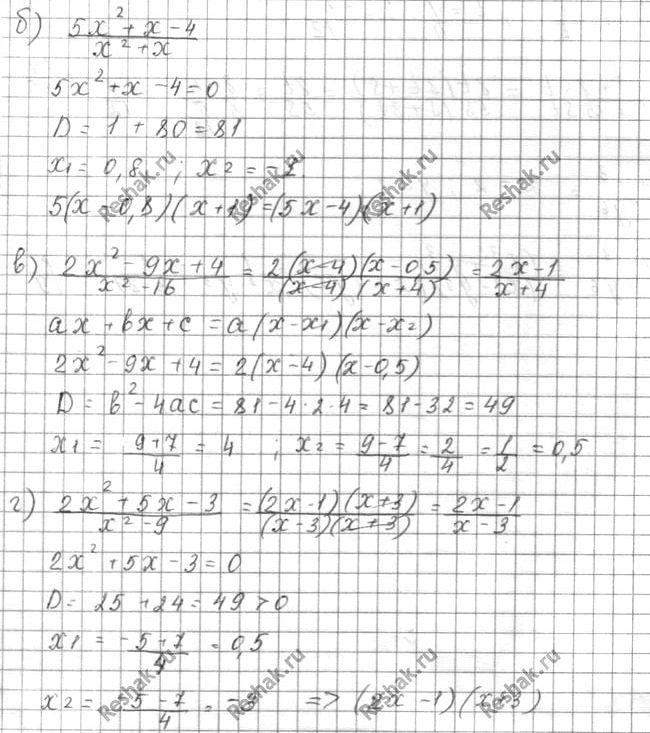 б) (5x² + x - 4)/(x² + x)
5x² + x - 4 = 0
D = 1 + 80 = 81
x₁ = 0,8 ; x₂ = -1
5(x - 0,8)(x + 1) = (5x - 4)(x + 1)
в) (2x² - 9x + 4)/(x² - 16) = (2(x - 4)(x - 0,5))/((x - 4)(x + 4)) = (2x - 1)/(x + 4)
ax + bx + c = a(x - x₁)(x - x₂)
2x² - 9x + 4 = 2(x - 4)(x - 0,5)
D = b² - 4ac = 81 - 4·2·4 = 81 - 32 = 49
x₁ = (9 + 7)/4 = 4 ; x₂ = (9 - 7)/4 = 2/4 = 1/2 = 0,5
г) (2x² + 5x - 3)/(x² - 9) = ((2x - 1)(x + 3))/((x - 3)(x + 3)) = (2x - 1)/(x - 3)
2x² + 5x - 3 = 0
D = 25 + 24 = 49 > 0
x₁ = (-5 + 7)/4 = 0,5
x₂ = (-5 - 7)/4 = -3 => (2x - 1)(x + 3)
Reshak.ru
Reshak.ru
Reshak.ru
Reshak.ru
Reshak.ru
Reshak.ru